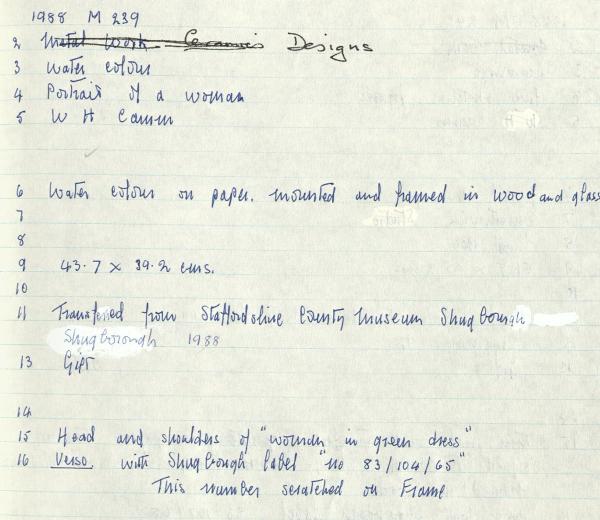 1988 M 239
2 Metal Work Ceramics Designs
3 Water colour
4 Portrait of a woman
5 W H Camm
6 Water colour on paper. mounted and framed in wood and glass
7
8
9 43.7 x 39.2 cms.
10
11 Transferred from Staffordshire County Museum Shugborough
Shugborough 1988
13 Gift
14
15 Head and shoulders of "woman in green dress"
16 Verso. with Shugborough label "no 83/104/65"
This number scratched on Frame